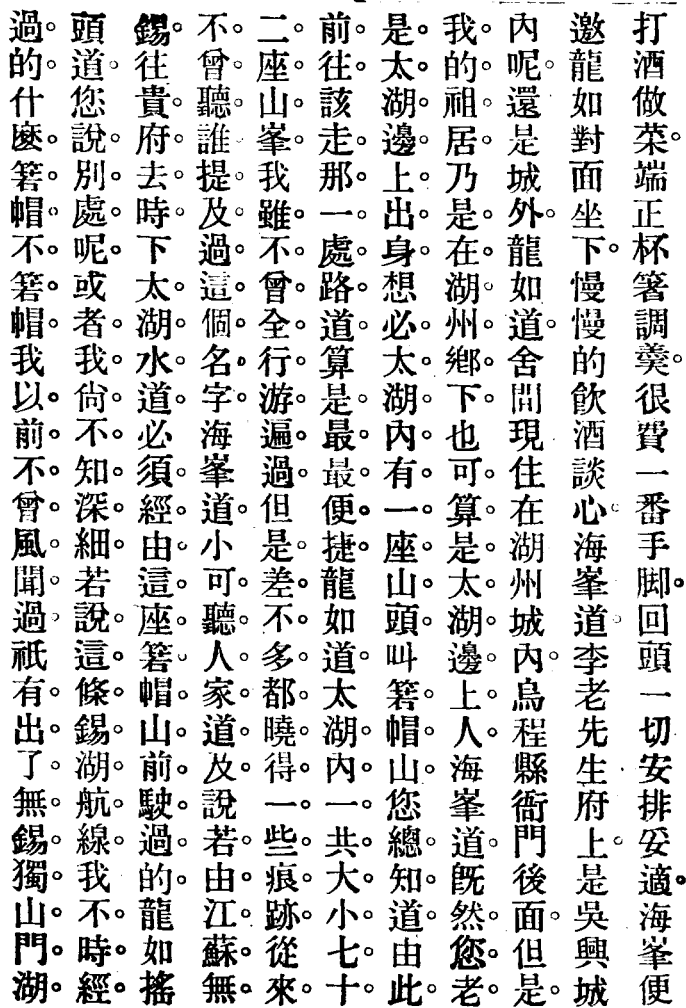 打酒做菜。端正杯箸調羹。很費一番手脚。回頭一切安排妥適。海峯便
邀龍如對面坐下。慢慢的飲酒談心。海峯道李老先生府上。是吳興城
內呢。還是城外。龍如道。舍間現住在湖州城內。烏程縣衙門後面。但是。
我。的。祖。居。乃。是。在。湖。州。鄉。下。也。可。算。是。太。湖。邊。上。人。海峯道。旣。然。您。老。
是。太。湖。邊。上。出。身。想。必。太。湖。內。有。一。座。山。頭。叫。箬。帽。山。您。總。知。道。由。此。
前。往。該。走。那。一。處。路。道。算。是。最。最。便。捷。龍如道。太。湖。內。一。共。大。小。七。十。
二。座。山。峯。我。雖。不。曾。全。行。游。遍。過。但。是。差。不。多。都。曉。得。一。些。痕。跡。從。來。
不。曾。聽。誰。提。及。過。這。個。名。字。海峯道。小。可。聽。人。家。道。及。說。若。由。江。蘇。無。
錫。往。貴。府。去。時。下。太。湖。水。道。必。須。經。由。這。座。箬。帽。山。前。駛。過。的。龍如搖
頭道。您。說。別。處。呢。或。者。我。尙。不。知。深。細。若。說。這。條。錫。湖。航。線。我。不。時。經。
過。的。什。麽。箬。帽。不。箬。帽。我。以。前。不。曾。風。聞。過。祇。有。出。了。無。錫。獨。山。門。湖。